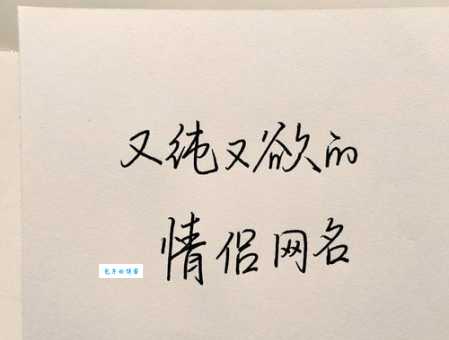 又纯又欲的
情侣网名